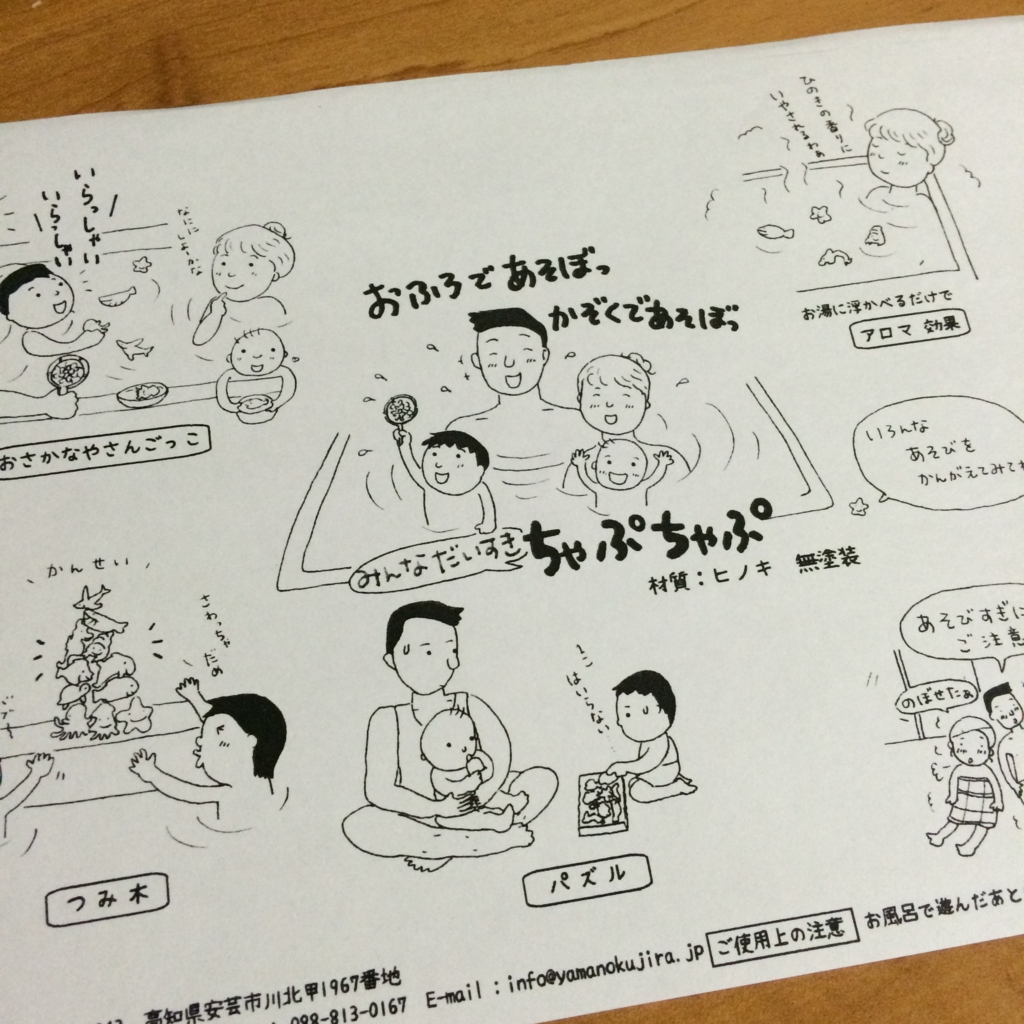 いらっしゃい
いらっしゃい
なににしようかな
おさかなやさんごっこ
おふろであそぼっ
かぞくであそぼっ
ひのきの香りに
いやされるわぁ
お湯に浮かべるだけで
アロマ 効果
いろんな
あそびを
かんがえてみてね
みんなだいすき
ちゃぷちゃぷ
材質：ヒノキ 無塗装
かんせい
さわっちゃ
だめ
つみ木
はいらない
パズル
あそびすぎに
ご注意
のぼせたぁ
高知県安芸市川北甲1967番地
088-813-0167 E-mail : info@yamanokujira.jp
ご使用上の注意
お風呂で遊んだあと